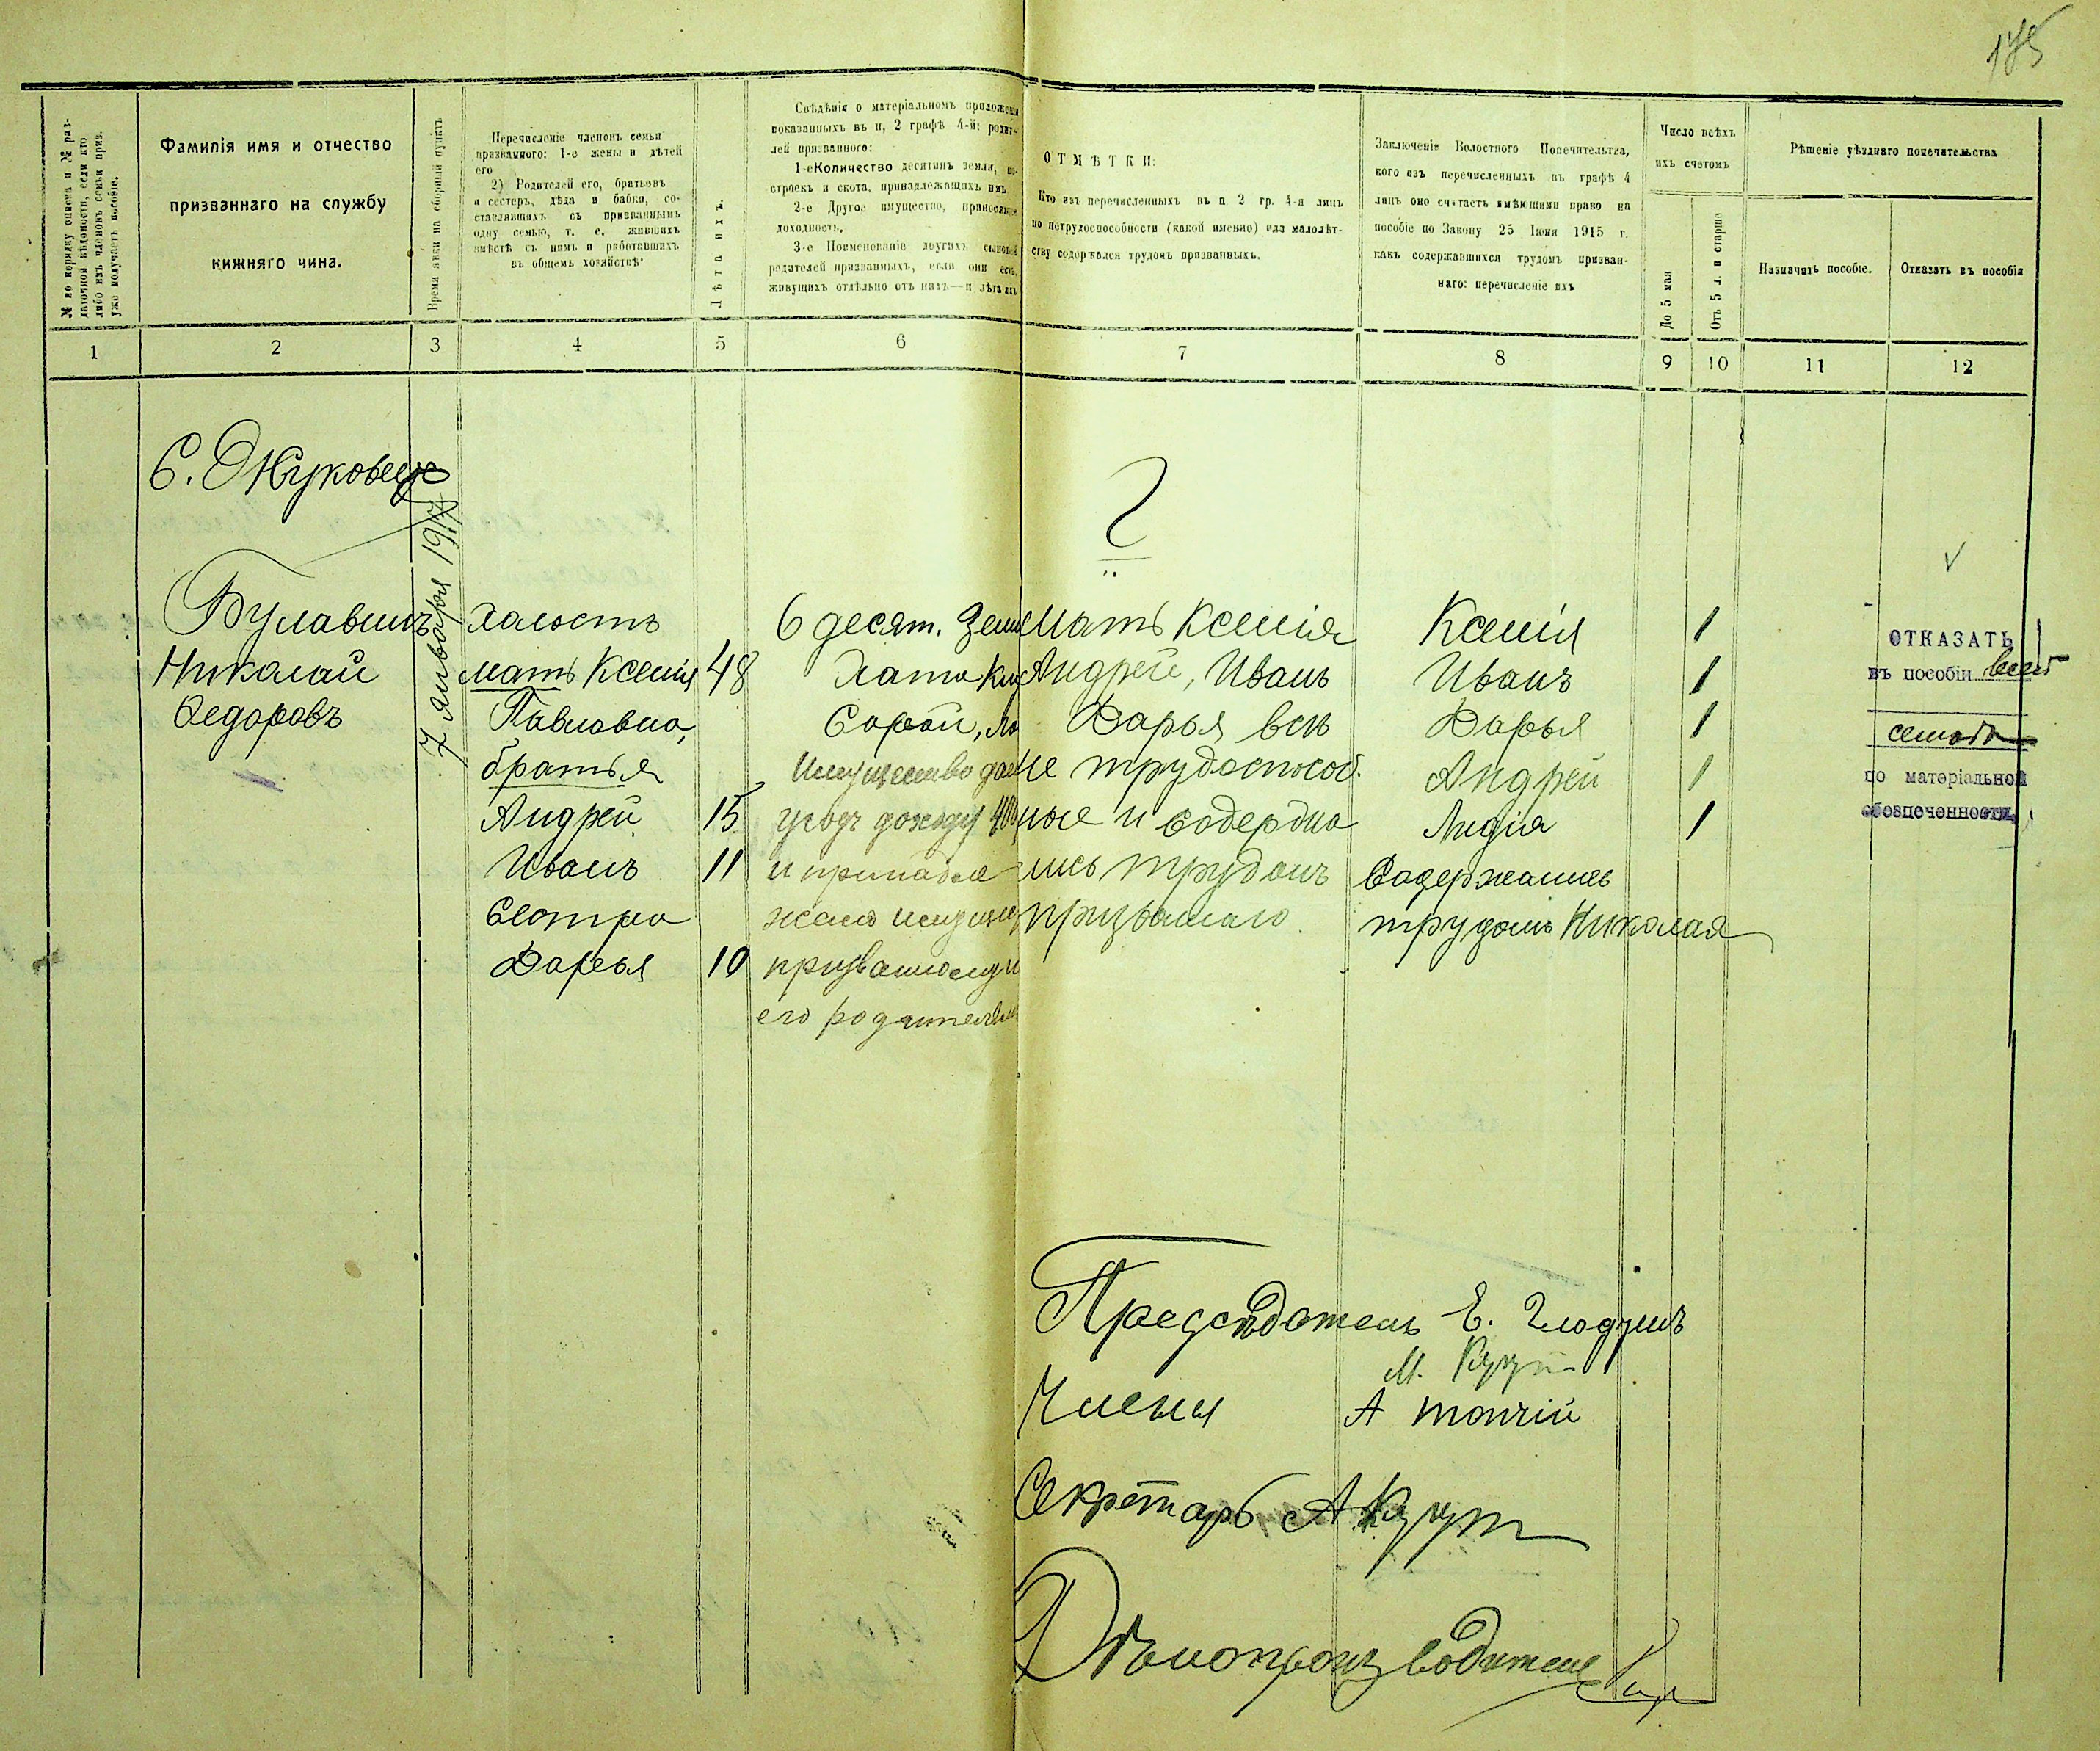 175
№ по порядку списка и № раз-
даточной вѣдомости, если кто
либо изъ членовъ семьи приз.
уже получаетъ пособіе.
Фамилія имя и отчество
призваннаго на службу
нижняго чина.
Время явки на сборный пунктъ
Перечисленіе членовъ семьи
призваннаго: 1-е жены и дѣтей
его
2) Родителей его, братьевъ
и сестеръ, дѣда и бабки, со-
ставлявшихъ съ призваннымъ
одну семью, т. е. жившихъ
вмѣстѣ съ нимъ и работавшихъ
въ общемъ хозяйствѣ
Лѣта ихъ.
Свѣдѣнія о матеріальномъ приложеніи
показанныхъ въ п, 2 графѣ 4-й: родит-
лей призваннаго:
1-е Количество десятинъ земли, по-
строекъ и скота, принадлежащихъ имъ
2-е Другое имущество, приносящее
доходность,
3-е Поименованіе другихъ сыновей
родителей призванныхъ, если они есть,
живущихъ отдѣльно отъ нихъ—и лѣта ихъ
ОТМѢТКИ:
Кто изъ перечисленныхъ въ п 2 гр. 4-я лицъ
по нетрудоспособности (какой именно) или малолѣт-
ству содержался трудомъ призванныхъ.
Заключеніе Волостного Попечительтва,
кого изъ перечисленныхъ въ графѣ 4
лицъ оно считаетъ имѣющими право на
пособіе по Закону 25 Іюня 1915 г.
какъ содержавшихся трудомъ призван-
наго: перечисленіе ихъ
Число всѣхъ
ихъ счетомъ
До 5 мая
Отъ 5 л. и старше
Рѣшеніе уѣзднаго попечительства
Назначить пособіе.
Отказать въ пособіи
1 2 3 4 5 6 7 8 9 10 11 12
С. Жуковецъ
7 Января 1917
2
Булавинъ
Николай
Федоровъ
Холостъ
мать Ксенія 48
Павловна,
братья
Андрей 15
Иванъ 11
Сестра
Дарья 10
6 десят. Земли
Хата
Сарай,
Имущество
угодъ доходу 400
и принадле
жало
призванному и
его родителямъ
Мать Ксенія
Андрей, Иванъ
Дарья всѣ
не трудоспособ.
ные и содержа
лись трудомъ
призваннаго.
Ксенія 1
Иванъ 1
Дарья 1
Андрей 1
Лидія 1
Содержались
трудомъ Николая
ОТКАЗАТЬ
въ пособіи всей
семьѣ
по матеріальной
обезпеченности
Предсѣдатель Е. Глодунъ
М. Кухт
Члены А Тончій
Секретарь А Кухт
Дѣлопроизводитель